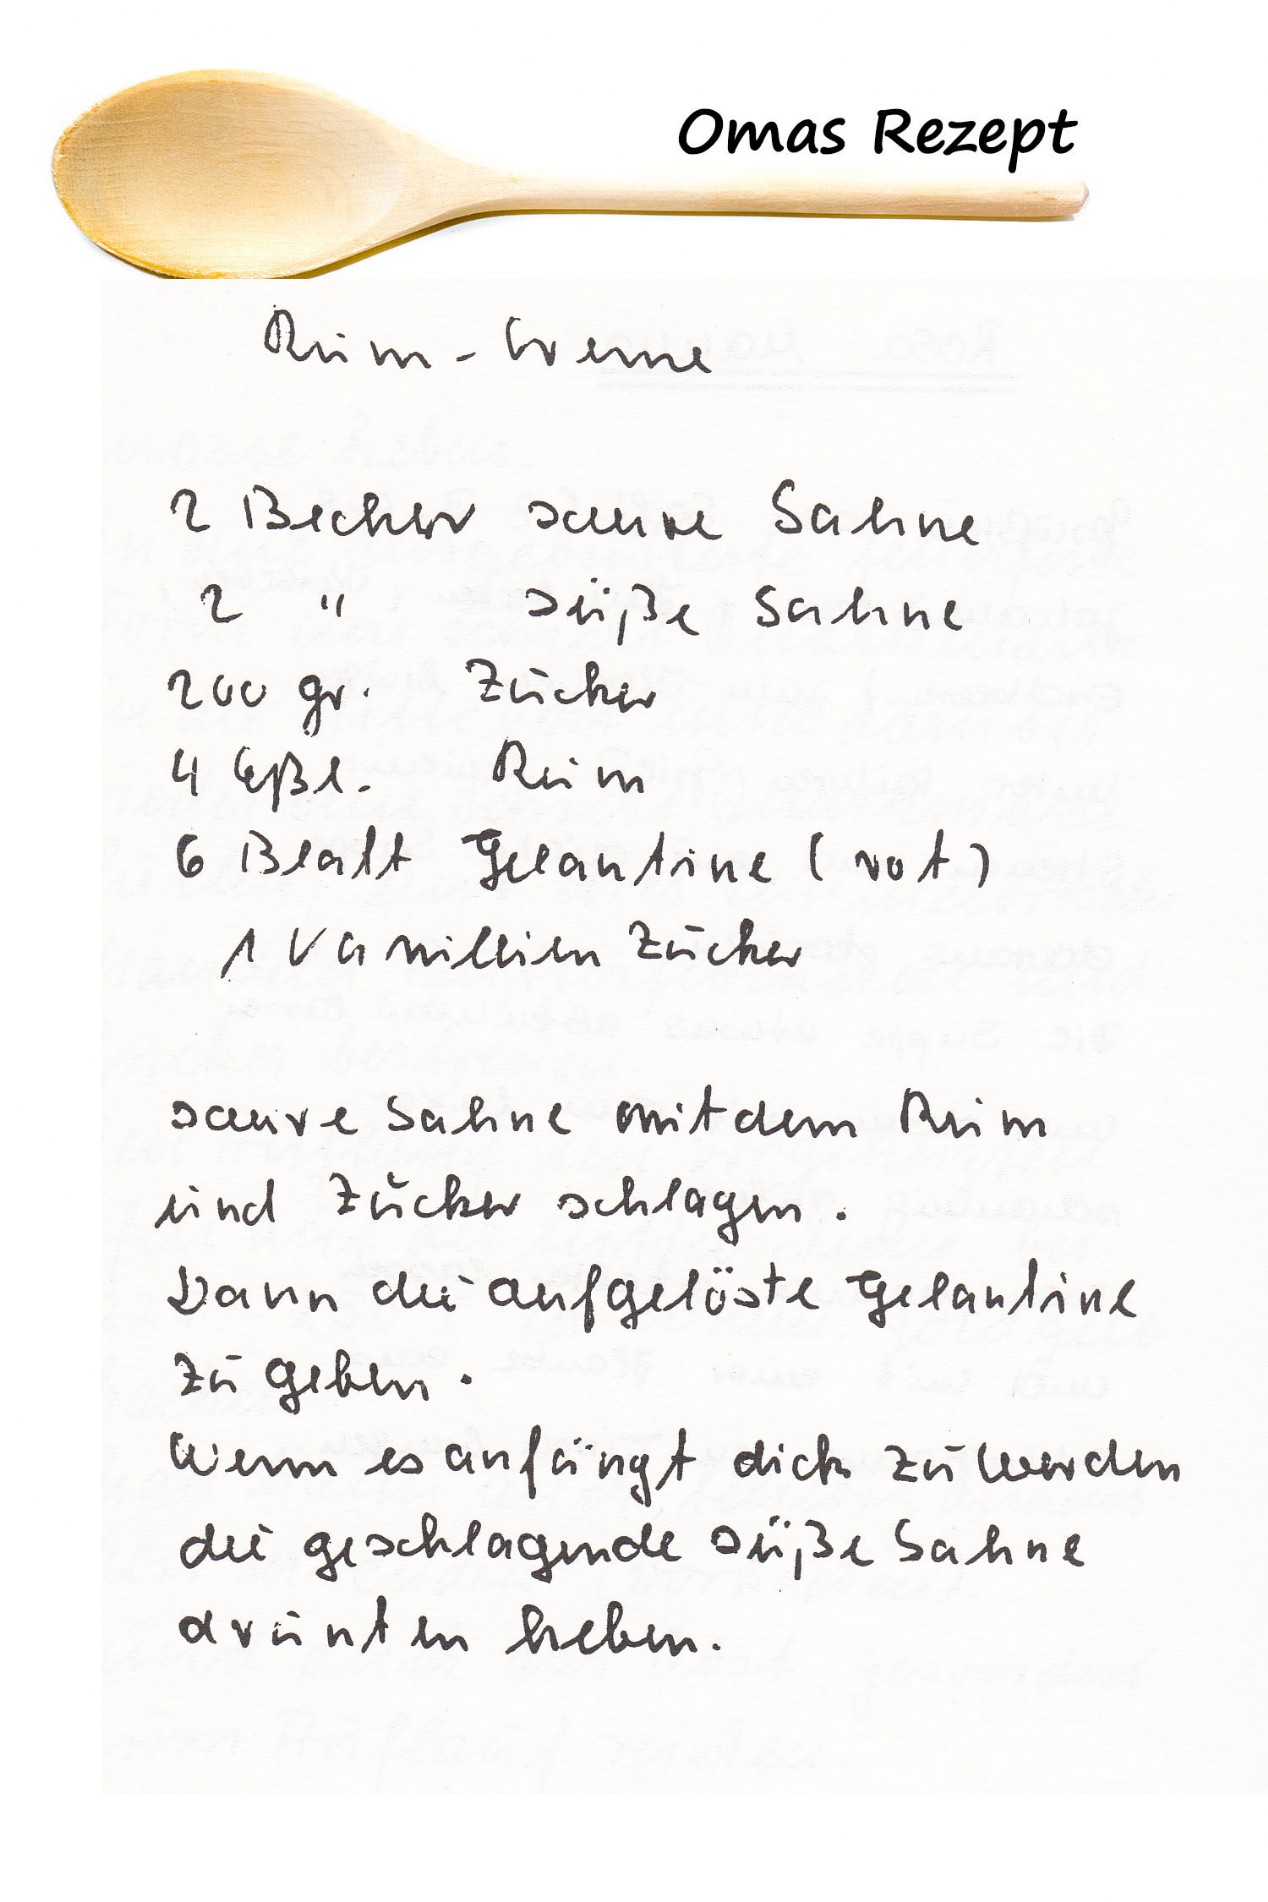 Omas Rezept
Rum-Creme
2 Becher saure Sahne
2 " süße Sahne
200 gr. Zucker
4 Eßl. Rum
6 Blatt Gelantine (rot)
1 Vanillien Zucker
saure Sahne mit dem Rum
und Zucker schlagen.
Dann die aufgelöste Gelantine
zu geben.
Wenn es anfängt dick zu werden
die geschlagende süße Sahne
drunten heben.